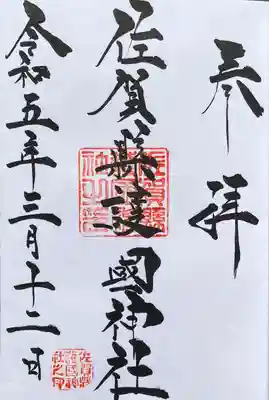 奉拝
佐賀縣護國神社
令和五年三月十二日